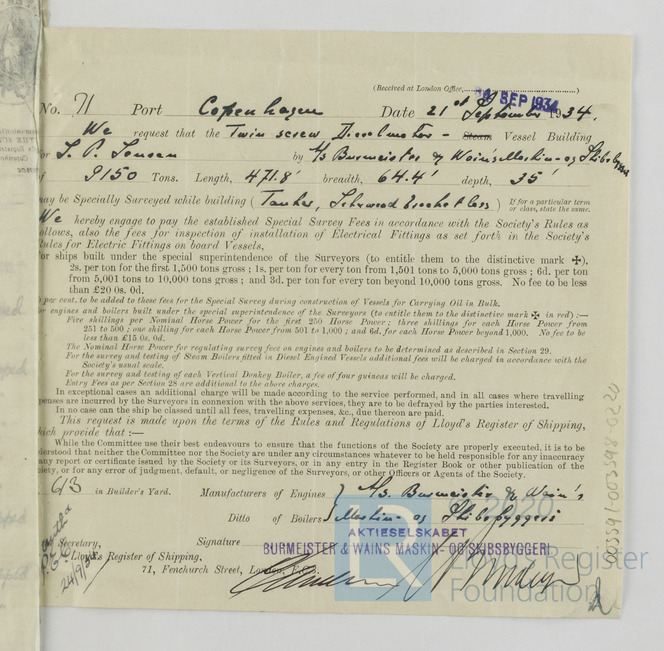 (Received at London Office, SEP 1934)
No. 71 Port Copenhagen Date 21st September 1934.
We request that the Twin screw Dieselmotor - Steam Vessel Building
for by A/s Burmeister & Wain's Maskin- og Skibsbyggeri
of 9150 Tons. Length, 471.8' breadth, 64.4' depth, 35'
may be Specially Surveyed while building (Tanker, ) If for a particular term
or class, state the same.
We hereby engage to pay the established Special Survey Fees in accordance with the Society's Rules as
follows, also the fees for inspection of installation of Electrical Fittings as set forth in the Society's
Rules for Electric Fittings on board Vessels,
For ships built under the special superintendence of the Surveyors (to entitle them to the distinctive mark ✠),
2s. per ton for the first 1,500 tons gross ; 1s. per ton for every ton from 1,501 to 5,000 tons gross ; 6d. per ton
from 5,001 to 10,000 tons gross ; and 3d. per ton for every ton beyond 10,000 tons gross. No fee to be less
than £20 0s. 0d.
per cent. to be added to these fees for the Special Survey during construction of Vessels for Carrying Oil in Bulk.
For engines and boilers built under the special superintendence of the Surveyors (to entitle them to the distinctive mark ✠ in red) :—
Five shillings per Nominal Horse Power for the first 250 Horse Power ; three shillings for each Horse Power from
251 to 500 ; one shilling for each Horse Power from 501 to 1,000 ; and 6d. for each Horse Power beyond 1,000. No fee to be
less than £15 0s. 0d.
The Nominal Horse Power for regulating survey fee on engines and boilers to be determined as described in Section 29.
For the survey and testing of Steam Boilers fitted in Diesel Engined Vessels additional fees will be charged in accordance with the
Society's usual scale.
For the survey and testing of each Vertical Donkey Boiler, a fee of four guineas will be charged.
Entry Fees as per Section 28 are additional to the above charges.
In exceptional cases an additional charge will be made according to the service performed, and in all cases where travelling
expenses are incurred by the Surveyors in connexion with the above services, they are to be defrayed by the parties interested.
In no case can the ship be classed until all fees, travelling expenses, &c., due thereon are paid.
This request is made upon the terms of the Rules and Regulations of Lloyd's Register of Shipping,
which provide that :—
While the Committee use their best endeavours to ensure that the functions of the Society are properly executed, it is to be
understood that neither the Committee nor the Society are under any circumstances whatever to be held responsible for any inaccuracy
in any report or certificate issued by the Society or its Surveyors, or in any entry in the Register Book or other publication of the
Society, or for any error of judgment, default, or negligence of the Surveyors, or other Officers or Agents of the Society.
613 in Builder's Yard. Manufacturers of Engines } A/s. Burmeister & Wain's
Ditto of Boilers } Maskin- og Skibsbyggeri
AKTIESELSKABET
Secretary, Signature BURMEISTER & WAINS MASKIN- OG SKIBSBYGGERI
Lloyd's Register of Shipping,
71, Fenchurch Street, London, E.C.3.
24/9/34
© 2020
Lloyd's Register
Foundation